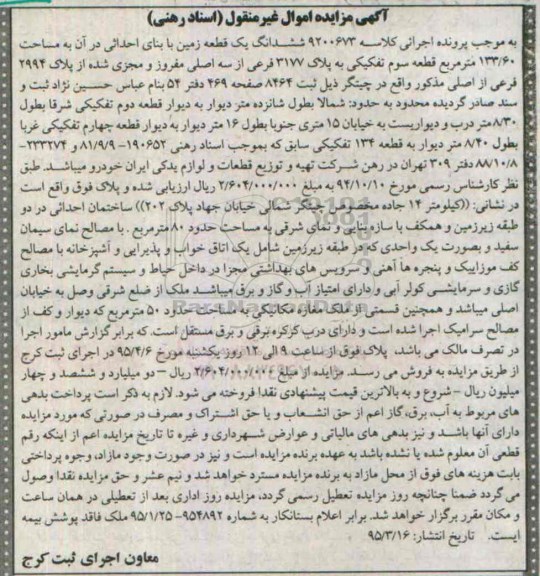 آگهی مزایده اموال غیرمنقول (اسناد رهنی)
به موجب پرونده اجرائی کلاسه ۹۲۰۰۶۷۳ ششدانگ یک قطعه زمین با بنای احداثی در آن به مساحت
۱۳۳/۶۰ مترمربع قطعه سوم تفکیکی به پلاک ۳۱۷۷ فرعی از سه اصلی مفروز و مجزی شده از پلاک ۲۹۹۴
فرعی از اصلی مذکور واقع در چیتگر ذیل ثبت ۸۴۶۴ صفحه ۴۶۹ دفتر ۵۴ بنام عباس حسین نژاد ثبت و
سند صادر گردیده محدود به حدود: شمالا بطول شانزده متر دیوار به دیوار قطعه دوم تفکیکی شرقا بطول
۸/۳۰ متر درب و دیواریست به خیابان ۱۵ متری جنوبا بطول ۱۶ متر دیوار به دیوار قطعه چهارم تفکیکی غربا
بطول ۸/۴۰ متر دیوار به قطعه ۱۳۴ تفکیکی سابق که بموجب اسناد رهنی ۱۹۰۶۵۲-۸۱/۹/۹ و ۲۳۳۲۷۴-
۸۸/۱۰/۸ دفتر ۳۰۹ تهران در رهن شرکت تهیه و توزیع قطعات و لوازم یدکی ایران خودرو میباشد. طبق
نظر کارشناس رسمی مورخ ۹۴/۱۰/۱۰ به مبلغ ۲/۶۰۴/۰۰۰/۰۰۰ ریال ارزیابی شده و پلاک فوق واقع است
در نشانی: ((کیلومتر ۱۴ جاده مخصوص چیتگر شمالی خیابان جهاد پلاک ۲۰۲)) ساختمان احداثی در دو
طبقه زیرزمین و همکف با سازه بنایی و نمای شرقی به مساحت حدود ۸۰ مترمربع . با مصالح نمای سیمان
سفید و بصورت یک واحدی که در طبقه زیرزمین شامل یک اتاق خواب و پذیرایی و آشپزخانه با مصالح
کف موزاییک و پنجره ها آهنی و سرویس های بهداشتی مجزا در داخل حیاط و سیستم گرمایشی بخاری
گازی و سرمایشی کولر آبی و دارای امتیاز آب و گاز و برق میباشد ملک از ضلع شرقی وصل به خیابان
اصلی میباشد و همچنین قسمتی از ملک مغازه مکانیکی به مساحت حدود ۵۰ مترمربع که دیوار و کف از
مصالح سرامیک اجرا شده است و دارای درب کرکره برقی و برق مستقل است. که برابر گزارش مامور اجرا
در تصرف مالک می باشد، پلاک فوق از ساعت ۹ الی ۱۲ روز یکشنبه مورخ ۹۵/۴/۶ در اجرای ثبت کرج
از طریق مزایده به فروش می رسد. مزایده از مبلغ ۲/۶۰۴/۰۰۰/۰۰۰ ریال – دو میلیارد و ششصد و چهار
میلیون ریال – شروع و به بالاترین قیمت پیشنهادی نقدا فروخته می شود. لازم به ذکر است پرداخت بدهی
های مربوط به آب، برق، گاز اعم از حق انشعاب و یا حق اشتراک و مصرف در صورتی که مورد مزایده
دارای آنها باشد و نیز بدهی های مالیاتی و عوارض شهرداری و غیره تا تاریخ مزایده اعم از اینکه رقم
قطعی آن معلوم شده یا نشده باشد به عهده برنده مزایده است و نیز در صورت وجود مازاد، وجوه پرداختی
بابت هزینه های فوق از محل مازاد به برنده مزایده مسترد خواهد شد و نیم عشر و حق مزایده نقدا وصول
می گردد ضمنا چنانچه روز مزایده تعطیل رسمی گردد، مزایده روز اداری بعد از تعطیلی در همان ساعت
و مکان مقرر برگزار خواهد شد. برابر اعلام بستانکار به شماره ۹۵۴۸۹۲-۹۵/۱/۲۵ ملک فاقد پوشش بیمه
ایست. تاریخ انتشار: ۹۵/۳/۱۶
معاون اجرای ثبت کرج